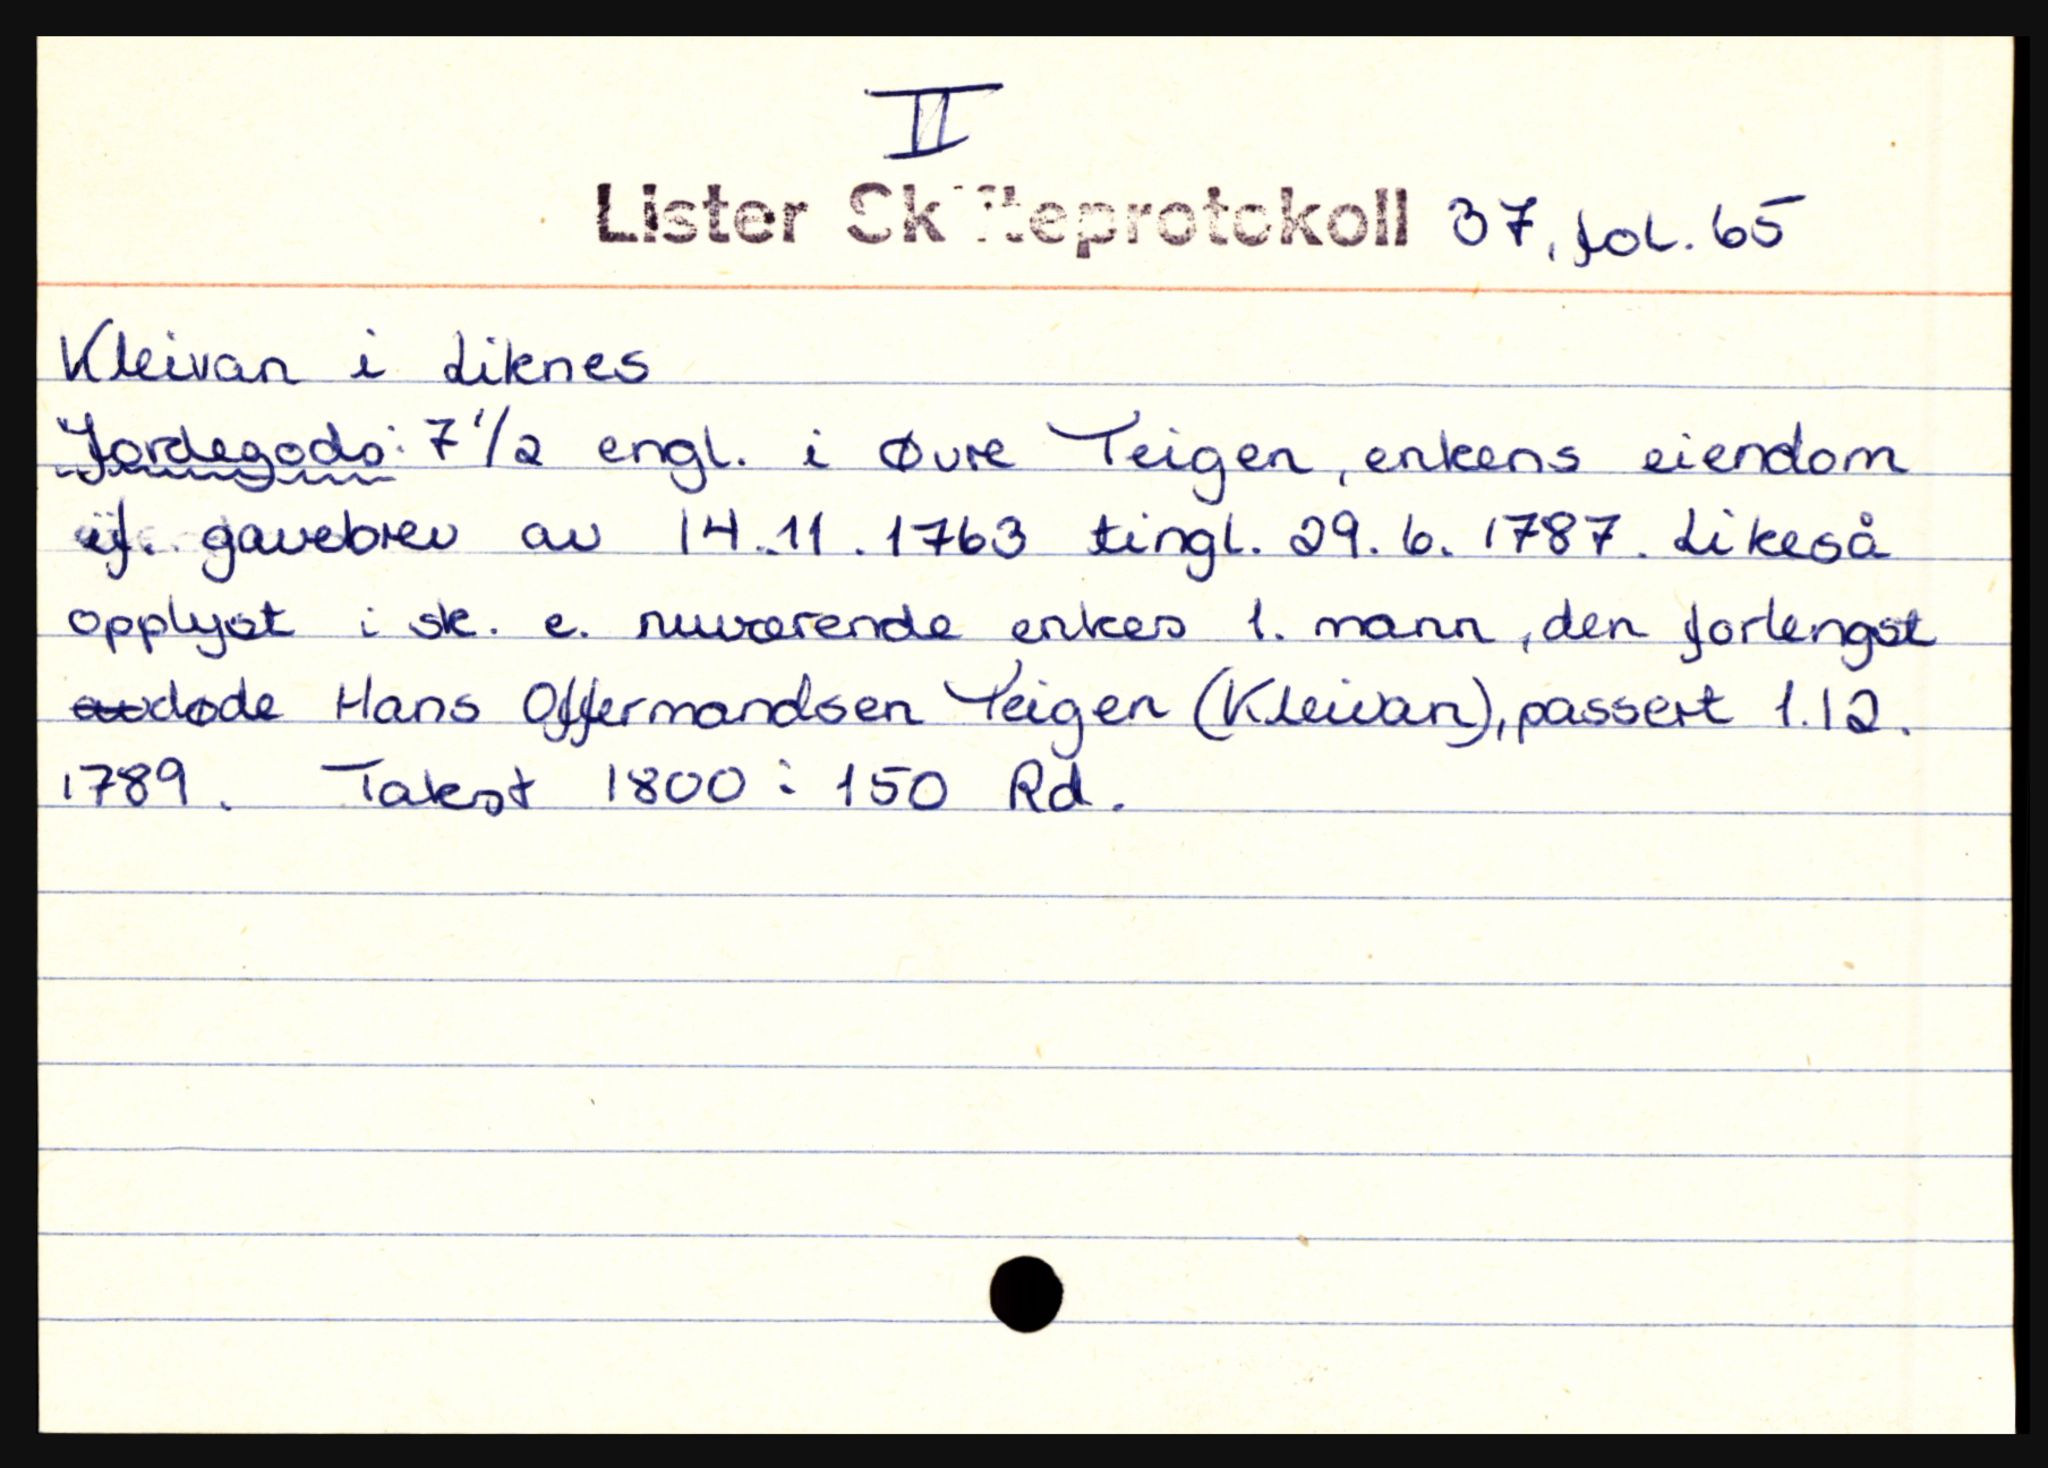 II
Lister Skifteprotokoll 37, fol. 65
Kleivan i Liknes
Jordegods: 7 1/2 engl. i Øvre Teigen, enkens eiendom
ifl. gavebrev av 14.11.1763 tingl. 29.6.1787. Likeså
opplyst i sk. e. nuværende enkes 1. mann, den forlengst
avdøde Hans Offermandsen Teigen (Kleivan), passert 1.12.
1789. Takst 1800: 150 Rd.